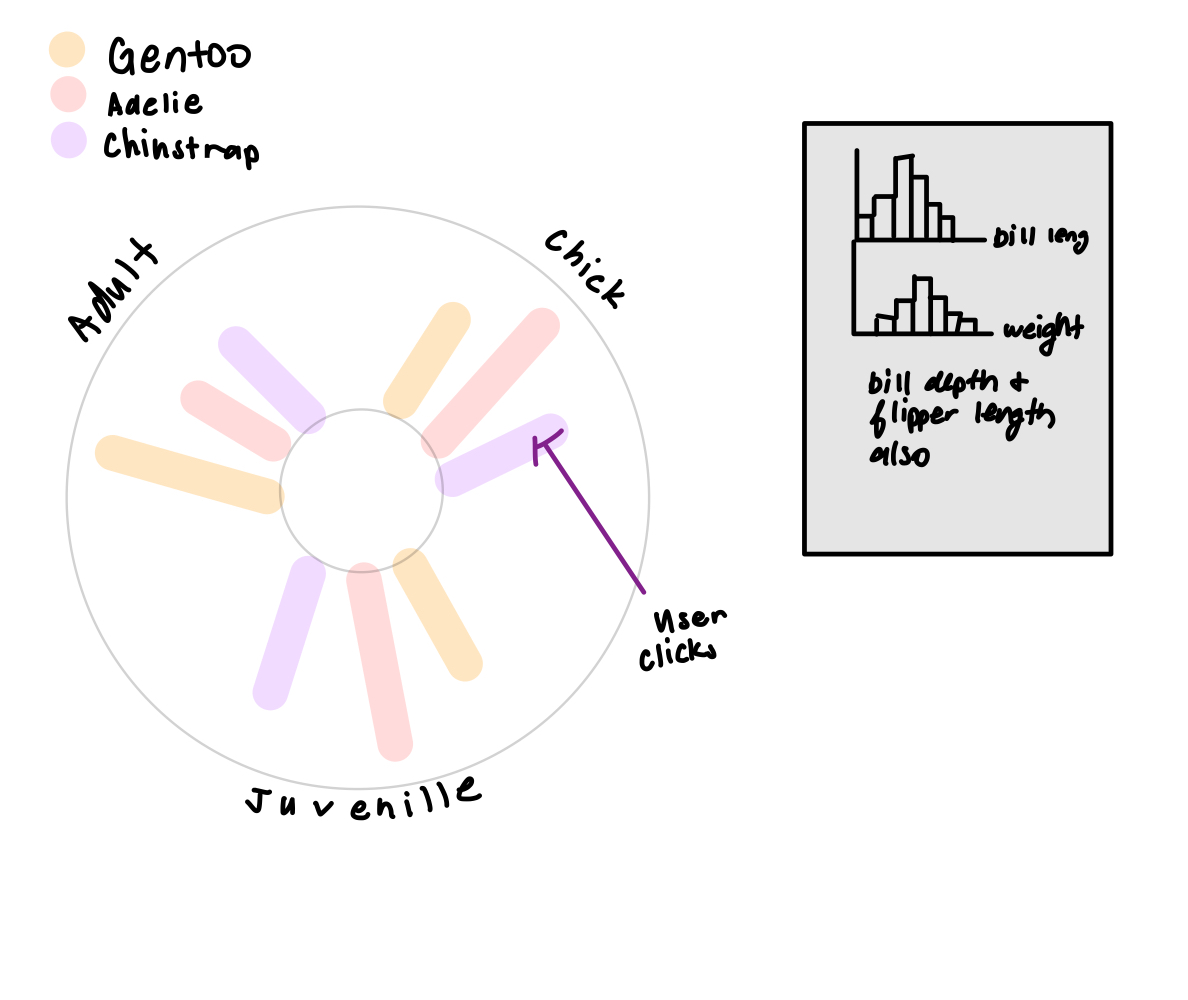 Gentoo
Adelie
Chinstrap
Adult
Chick
Juvenille
User
clicks
bill leng
weight
bill depth +
flipper length
also